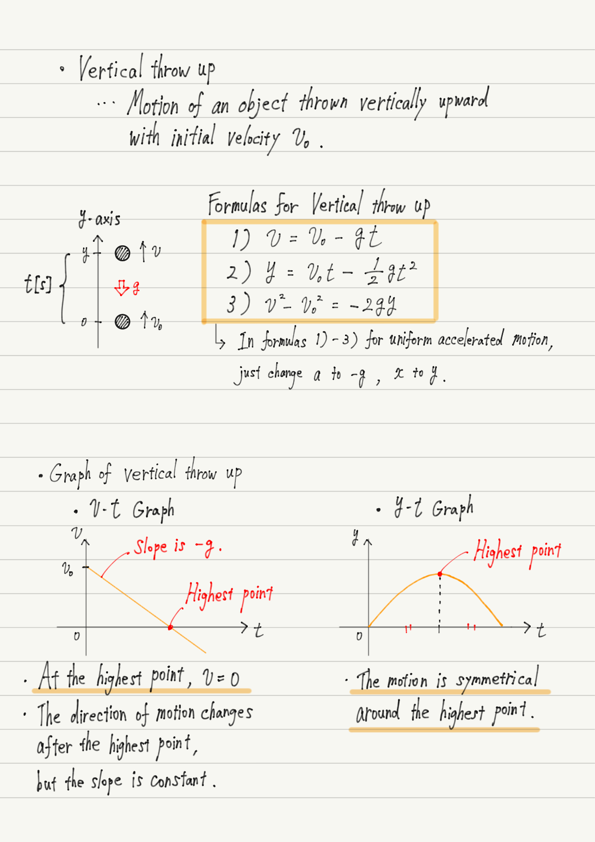 ・Vertical throw up
… Motion of an object thrown vertically upward
with initial velocity v₀.
Formulas for Vertical throw up
1) v = v₀ - gt
2) y = v₀t - 1/2 gt²
3) v² - v₀² = -2gy
↳ In formulas 1) - 3) for uniform accelerated motion,
just change a to -g, x to y.
y-axis
y ↑v
t[s] ⇩g
0 ↑v₀
・Graph of vertical throw up
・v-t Graph
v
Slope is -g.
v₀
Highest point
0 t
・At the highest point, v = 0
・The direction of motion changes
after the highest point,
but the slope is constant.
・y-t Graph
y
Highest point
0 t
・The motion is symmetrical
around the highest point.